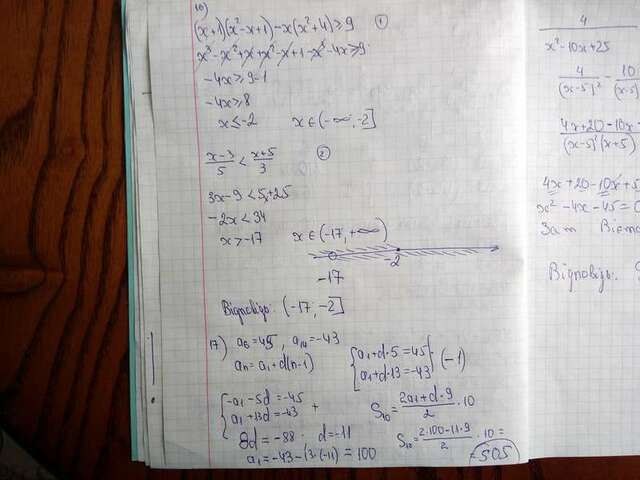 16)
(x+1)(x²-x+1)-x(x²+4)≥9 ①
x³-x²+x+x²-x+1-x³-4x≥9
-4x≥9-1
-4x≥8
x≤-2 x∈(-∞,-2]
x-3/5 < x+5/3 ②
3x-9<5x+25
-2x<34
x>-17 x∈(-17,+∞)
-17 -2
Відповідь: (-17,-2]
17) a₆=45, a₁₄=-43
aₙ=a₁+d(n-1) {a₁+d·5=45 |·(-1)
a₁+d·13=-43
{-a₁-5d=-45
a₁+13d=-43 + S₁₀=2a₁+d·9/2·10
8d=-88 d=-11 S₁₀=2·100-11·9/2·10=
a₁=-43-13·(-11)=100 =505
4
x²-10x+25
4/(x-5)² - 10/(x-5)
4x+20-10x+
(x-5)²(x+5)
4x+20-10x+5
x²-4x-45=0
Відповідь: